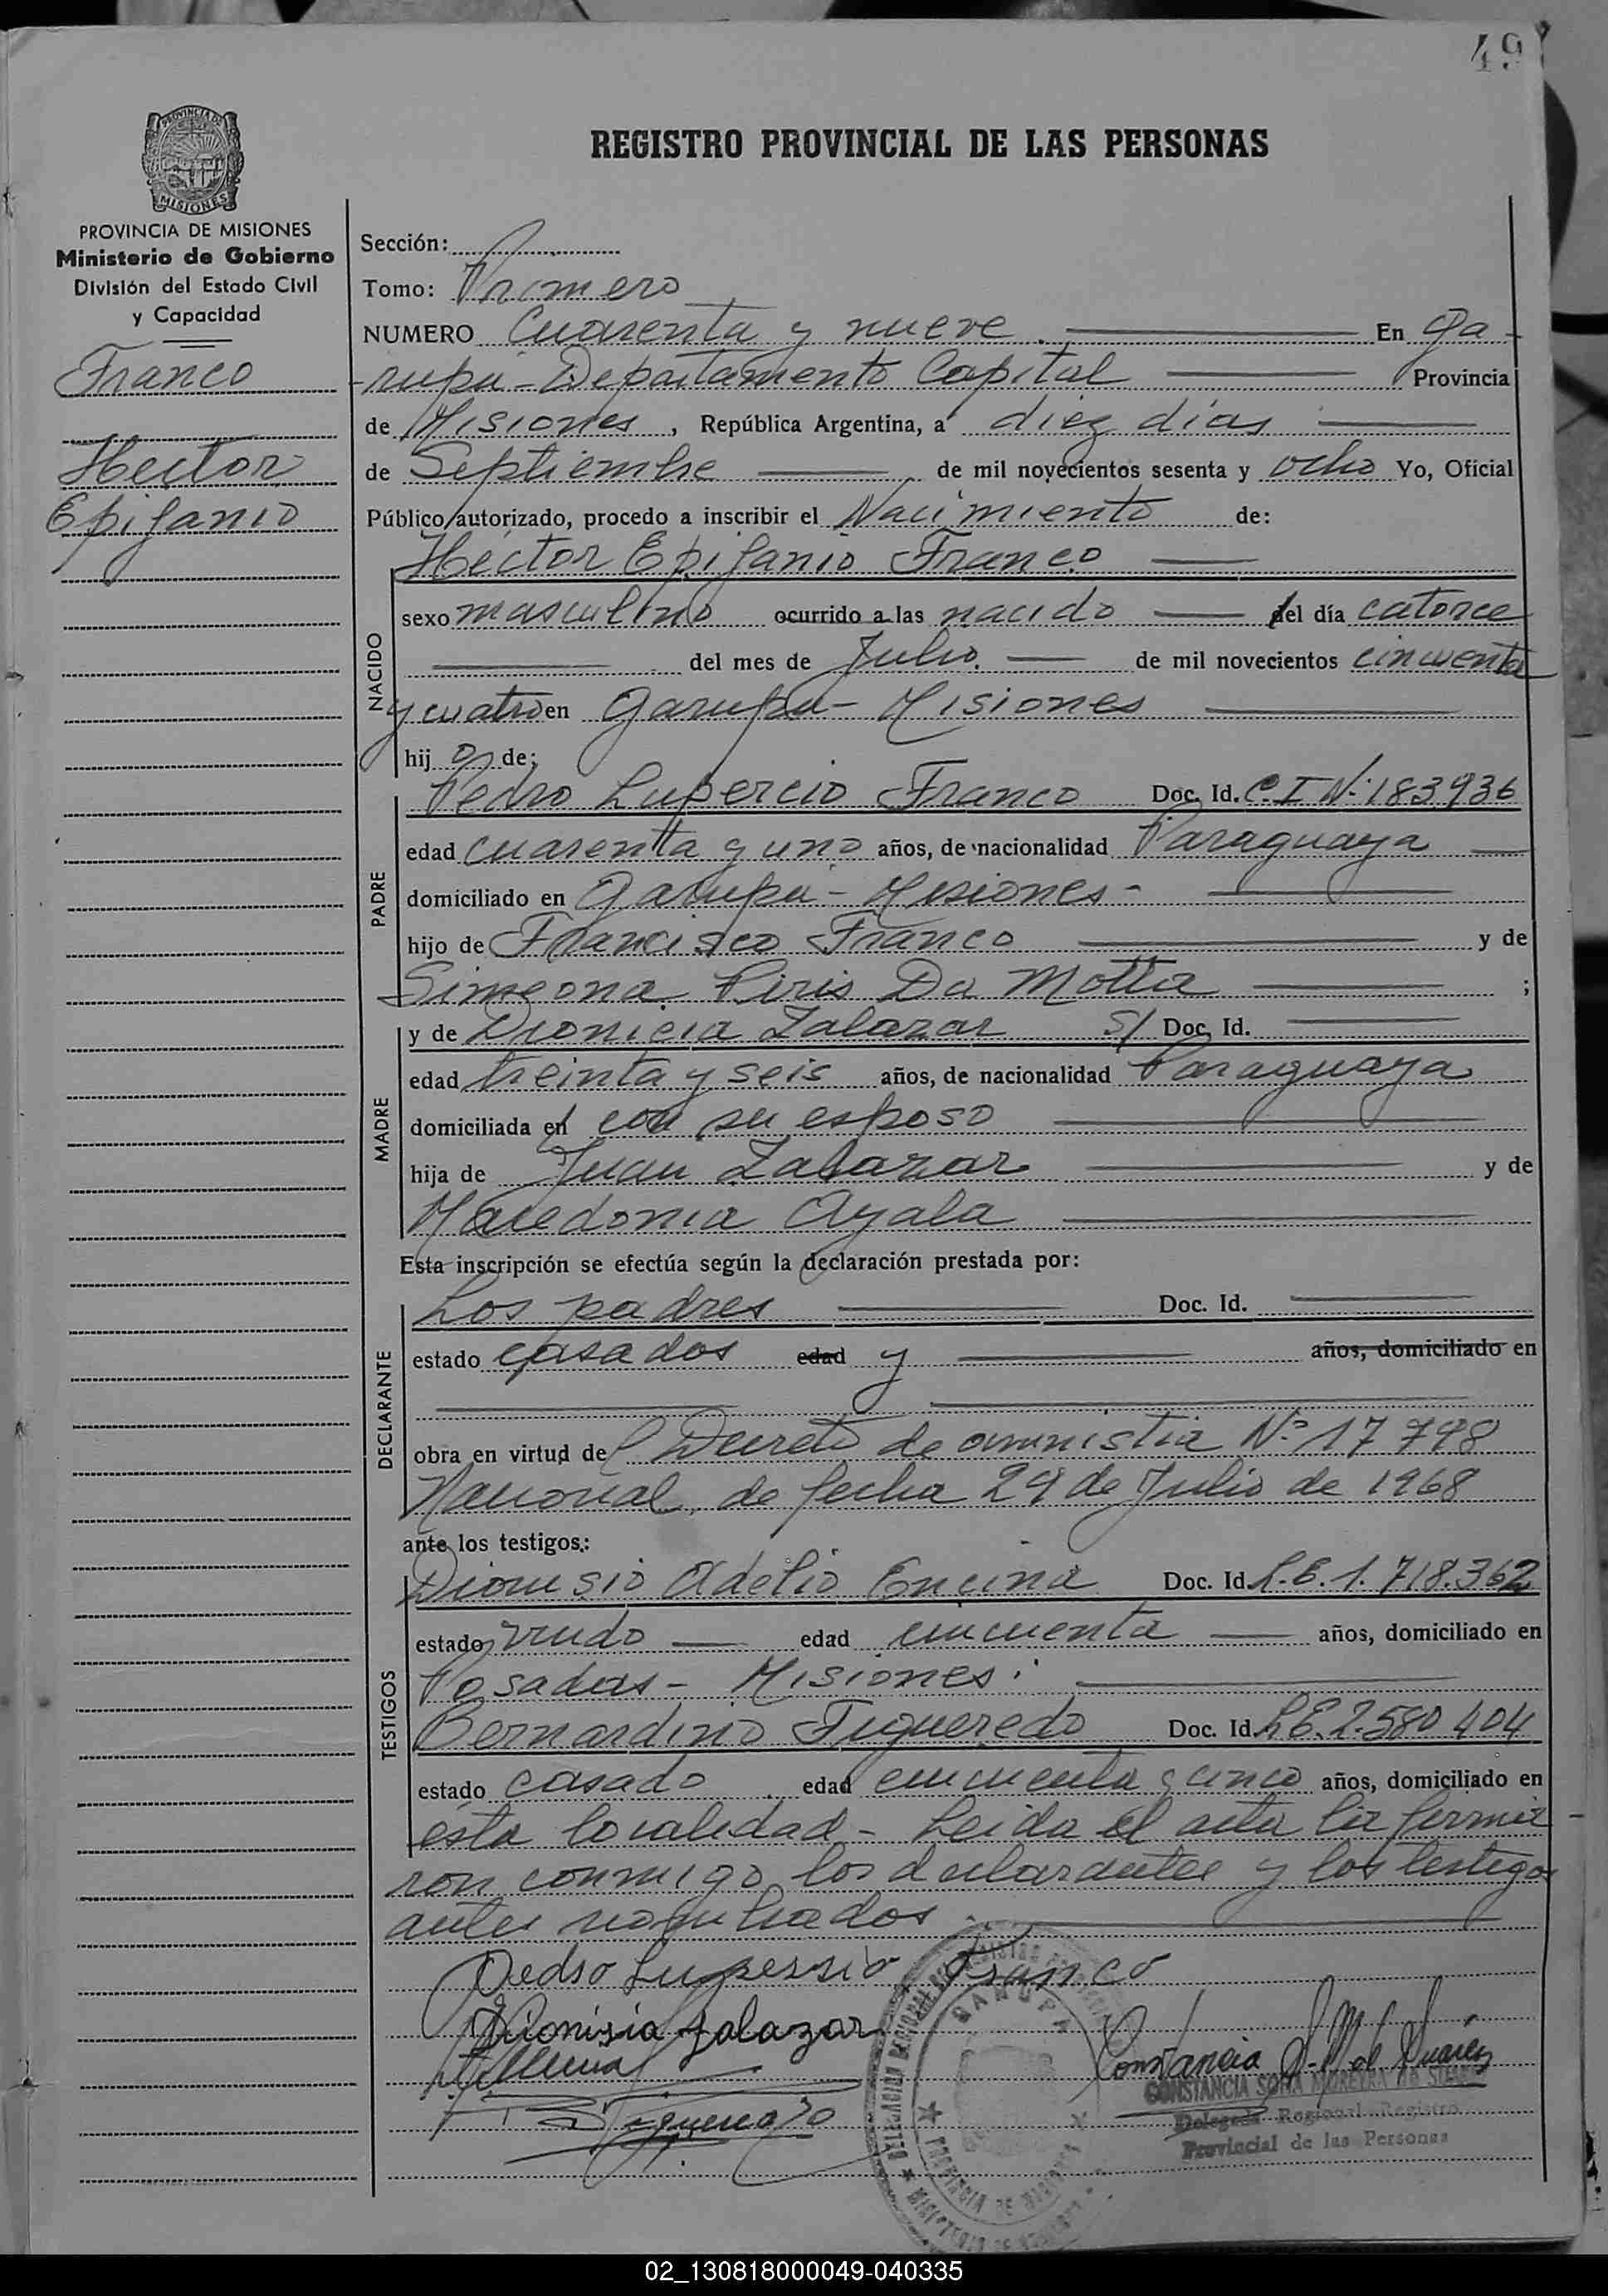 49
REGISTRO PROVINCIAL DE LAS PERSONAS
PROVINCIA DE
MISIONES
PROVINCIA DE MISIONES
Ministerio de Gobierno
División del Estado Civil
y Capacidad
Franco
Hector
Epifanio
Sección:
Tomo: Primero
NUMERO Cuarenta y nueve En Ga-
rupa - Departamento Capital Provincia
de Misiones, República Argentina, a diez días
de Septiembre de mil novecientos sesenta y ocho Yo, Oficial
Público autorizado, procedo a inscribir el Nacimiento de:
Héctor Epifanio Franco
NACIDO
sexo masculino ocurrido a las nacido del día catorce
del mes de Julio de mil novecientos cincuenta
y cuatro en Garupa - Misiones
hijo de:
Pedro Lupercio Franco Doc. Id. C.I Nº 183936
PADRE
edad cuarenta y uno años, de nacionalidad Paraguaya
domiciliado en Garupa - Misiones -
hijo de Francisco Franco y de
Simeona Piris Da Motta ;
y de Dionicia Zalazar S/ Doc. Id.
MADRE
edad treinta y seis años, de nacionalidad Paraguaya
domiciliada en con su esposo
hija de Juan Zalazar y de
Macedonia Ayala
Esta inscripción se efectúa según la declaración prestada por:
Los padres Doc. Id.
DECLARANTE
estado casados edad y años, domiciliado en
obra en virtud del Decreto de amnistia Nº 17 798
Nacional, de fecha 29 de Julio de 1968
ante los testigos:
Dionisio Adelio Encina Doc. Id. L.E. 1.718.362
TESTIGOS
estado viudo edad cincuenta años, domiciliado en
Posadas - Misiones.
Bernardino Figueredo Doc. Id. L.E. 2.580 404
estado casado edad cincuenta y cinco años, domiciliado en
ésta localidad - Leida el acta la firma-
ron conmigo los declarantes y los testigos
antes nombrados.
Pedro Lupersio Franco
Dionisia Zalazar
Constancia S. M. de Suárez
CONSTANCIA SOFIA MOREYRA DE SUAREZ
Delegada Regional Registro
Provincial de las Personas
GARUPA
PROVINCIA DE MISIONES
02_130818000049-040335